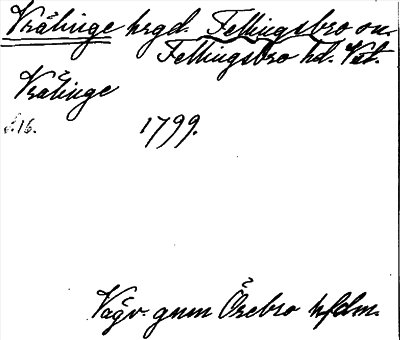 Vrålinge hrgd. Fellingsbro sn.
Fellingsbro hd. Vstl.
Vrålinge
f.16. 1799.
Vägv. gnm Örebro hfdm.